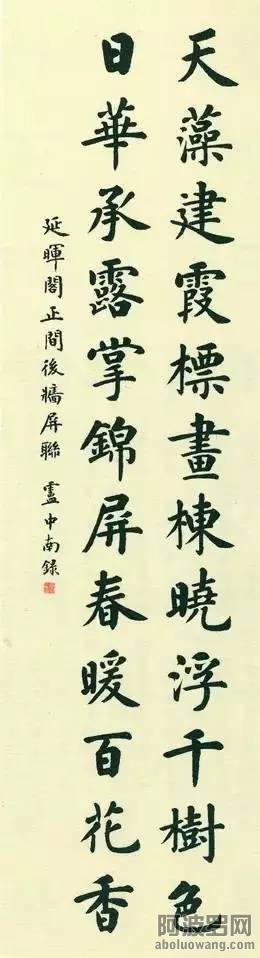 天藻建霞標畫棟曉浮千樹色
日華承露掌錦屏春暖百花香
延暉閣正間後牆屏聯 盧中南録
阿波罗网
aboluowang.com